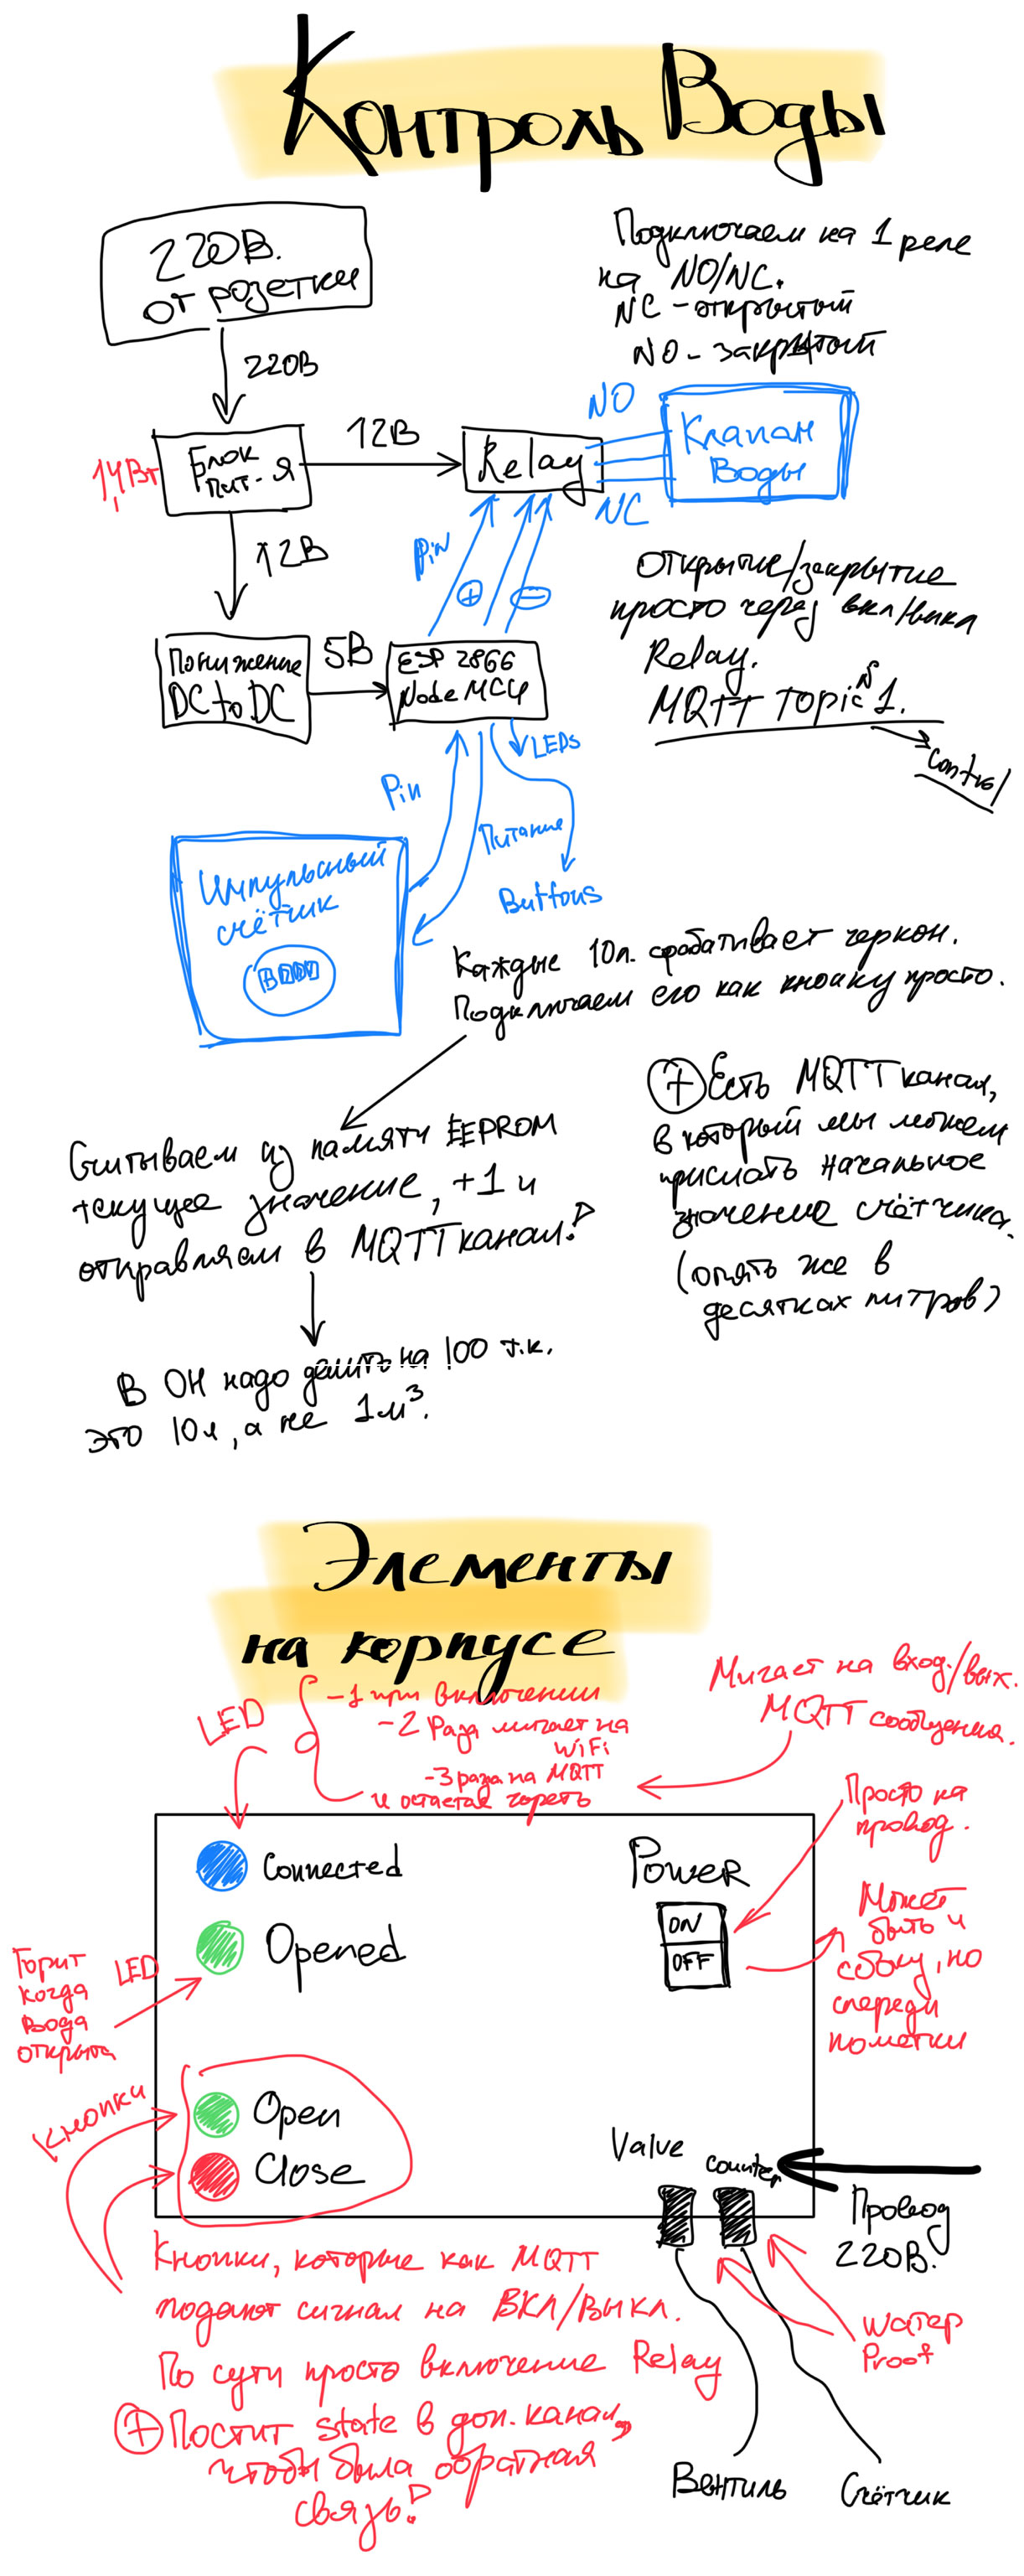 Контроль Воды
220В.
от розетки
Подключаем на 1 реле
на NO/NC.
NC - открытый
NO - закрытый
220В
14Вт
Блок
пит-я
12В
Relay
NO
NC
Клапан
Воды
12В
Pin
+
−
Открытие/закрытие
просто через вкл/выкл
Relay.
MQTT Topic №1.
Control
Понижение
DC to DC
5В
ESP 2866
NodeMCU
LEDs
Pin
Питание
Buttons
Импульсный
счётчик
Каждые 10л. срабатывает геркон.
Подключаем его как кнопку просто.
Считываем из памяти EEPROM
текущее значение, +1 и
отправляем в MQTT канал!
+ Есть MQTT канал,
в который мы можем
прислать начальное
значение счётчика.
(опять же в
десятках литров)
В OH надо делить на 100 т.к.
это 10л, а не 1м³.
Элементы
на корпусе
LED
-1 при включении
-2 Раза мигает на
WiFi
-3 раза на MQTT
и остаётся гореть
Мигает на вход./вых.
MQTT сообщения.
Просто на
провод.
Connected
Opened
Power
ON
OFF
Может
быть и
сбоку, но
спереди
пометки
Горит
когда
вода
открыта
LED
Кнопки
Open
Close
Valve
Counter
Провод
220В.
Water
Proof
Кнопки, которые как MQTT
подают сигнал на ВКЛ/ВЫКЛ.
По сути просто включение Relay
+ Постит state в доп. канал,
чтобы была обратная
связь!
Вентиль
Счётчик